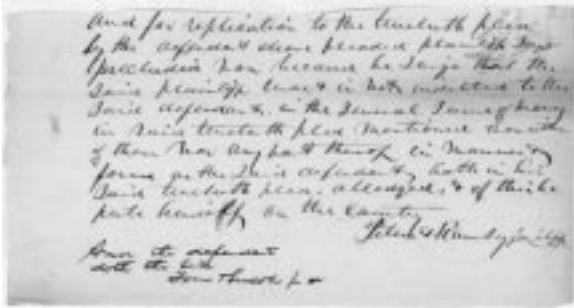 And for replication to the twelvth plea
by the defendant above pleaded plaintiff says
precludi non because he says that the
said plaintiff was & is not indebted to the
said defendant in the several sums of money
in said twelvth plea mentioned nor either
of them nor any part thereof in manner &
form as the said defendant hath in his
said twelvth plea alledged & of this he
puts himself on the Country
for plff
And the defendant
doth the like